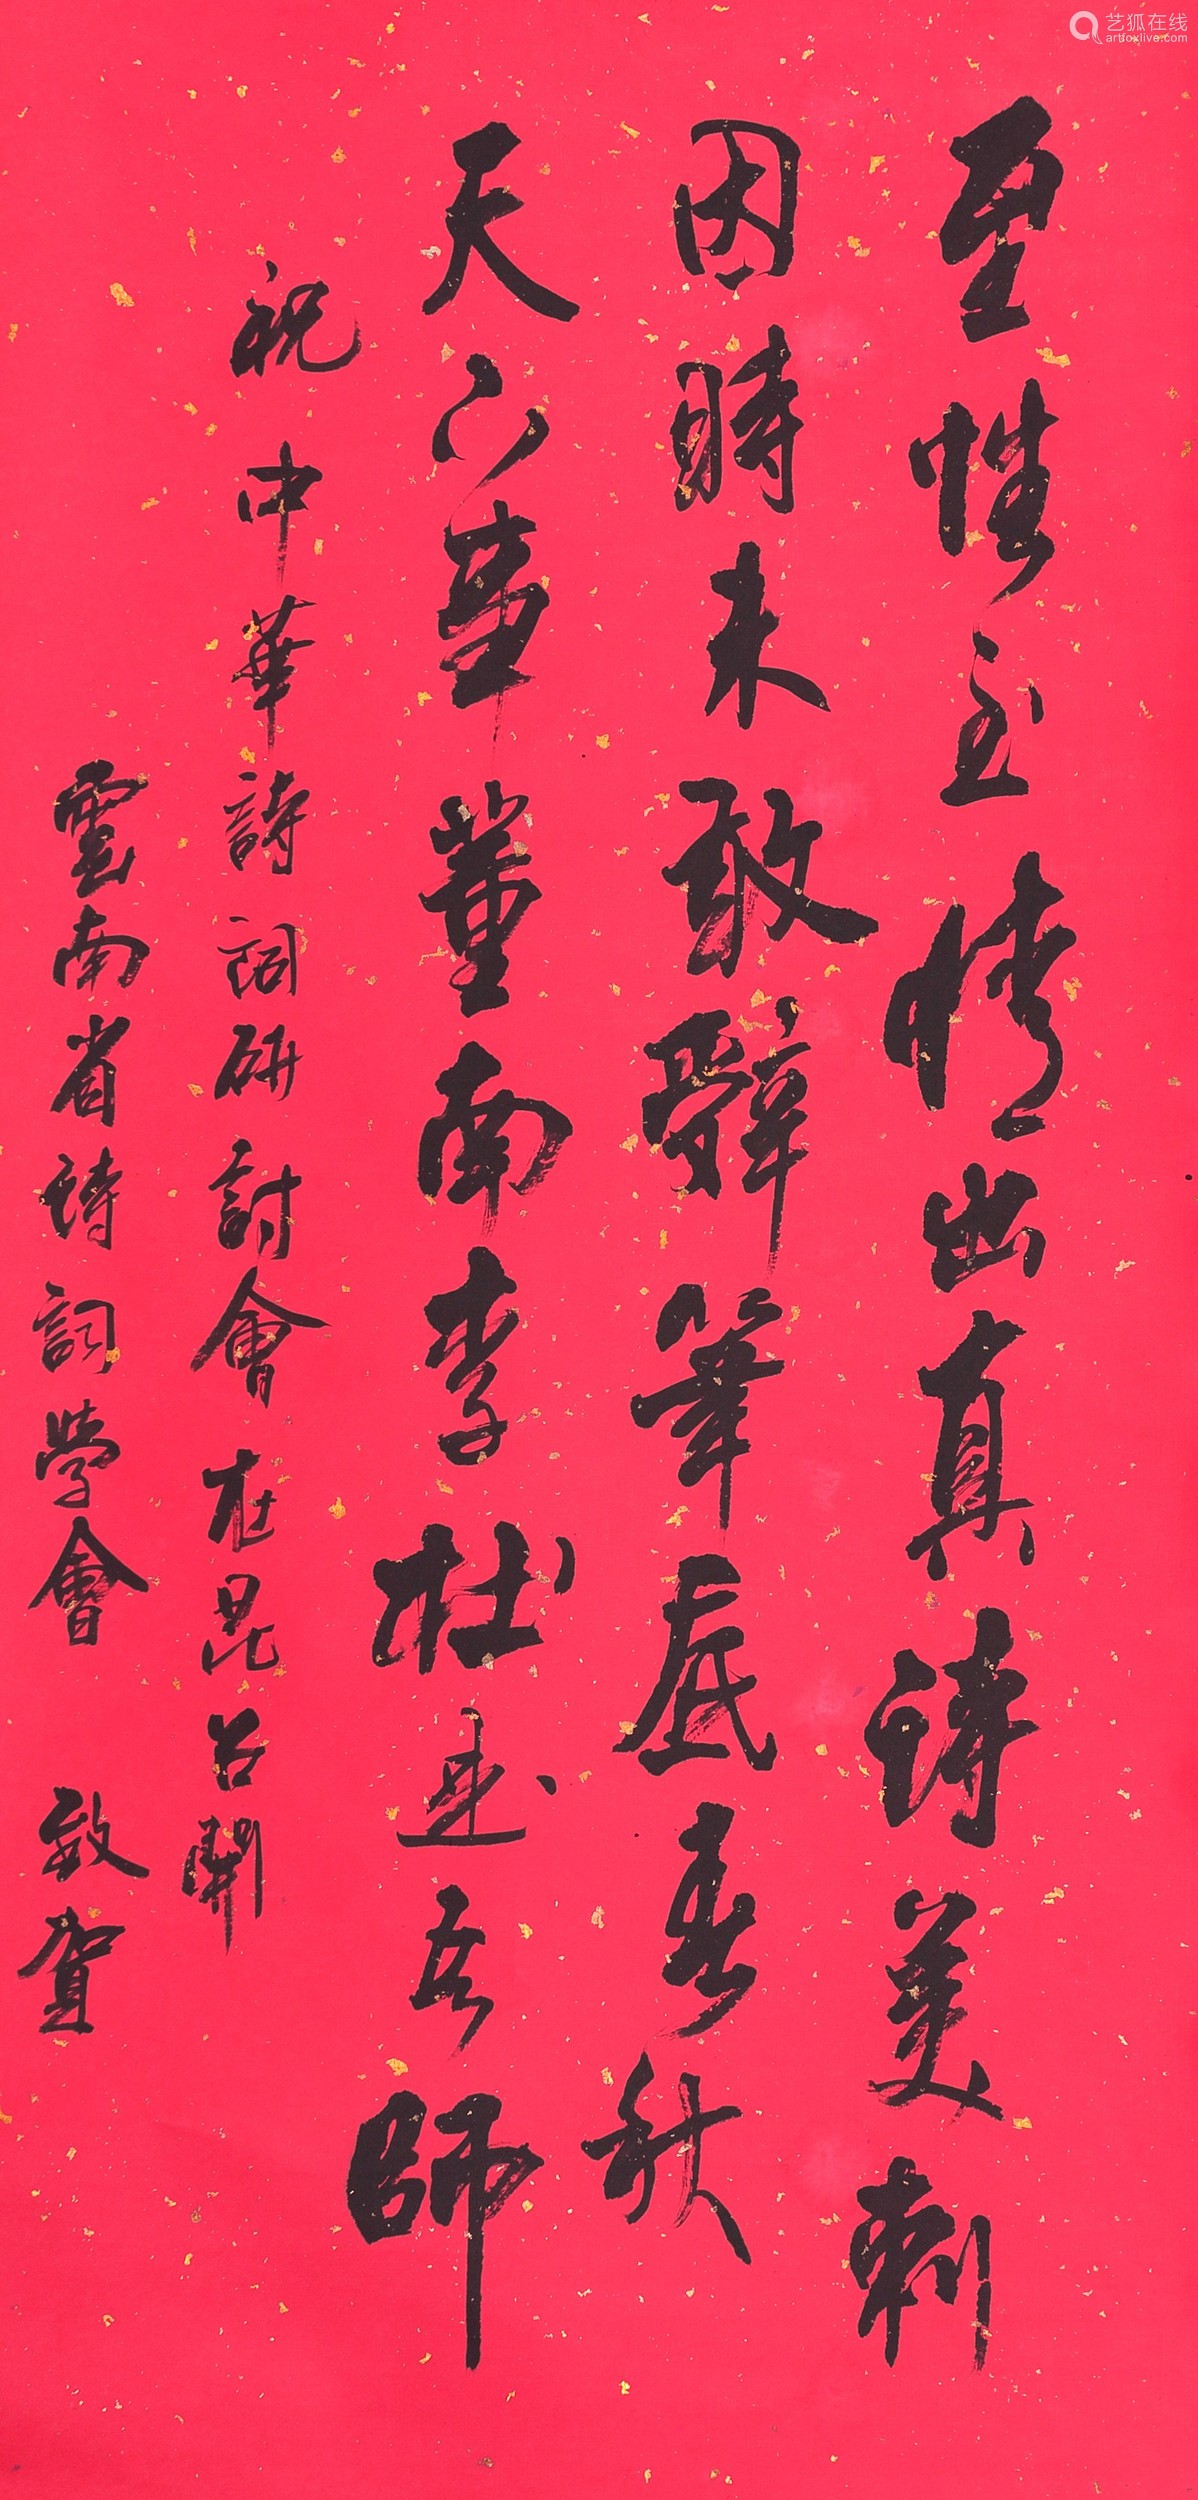 至性至情出真詩美刺
因時未敢辭筆底春秋
天下事董南李杜是吾師
祝中華詩詞研討會在昆召開
雲南省詩詞學會 致賀
艺狐在线
artfoxlive.com